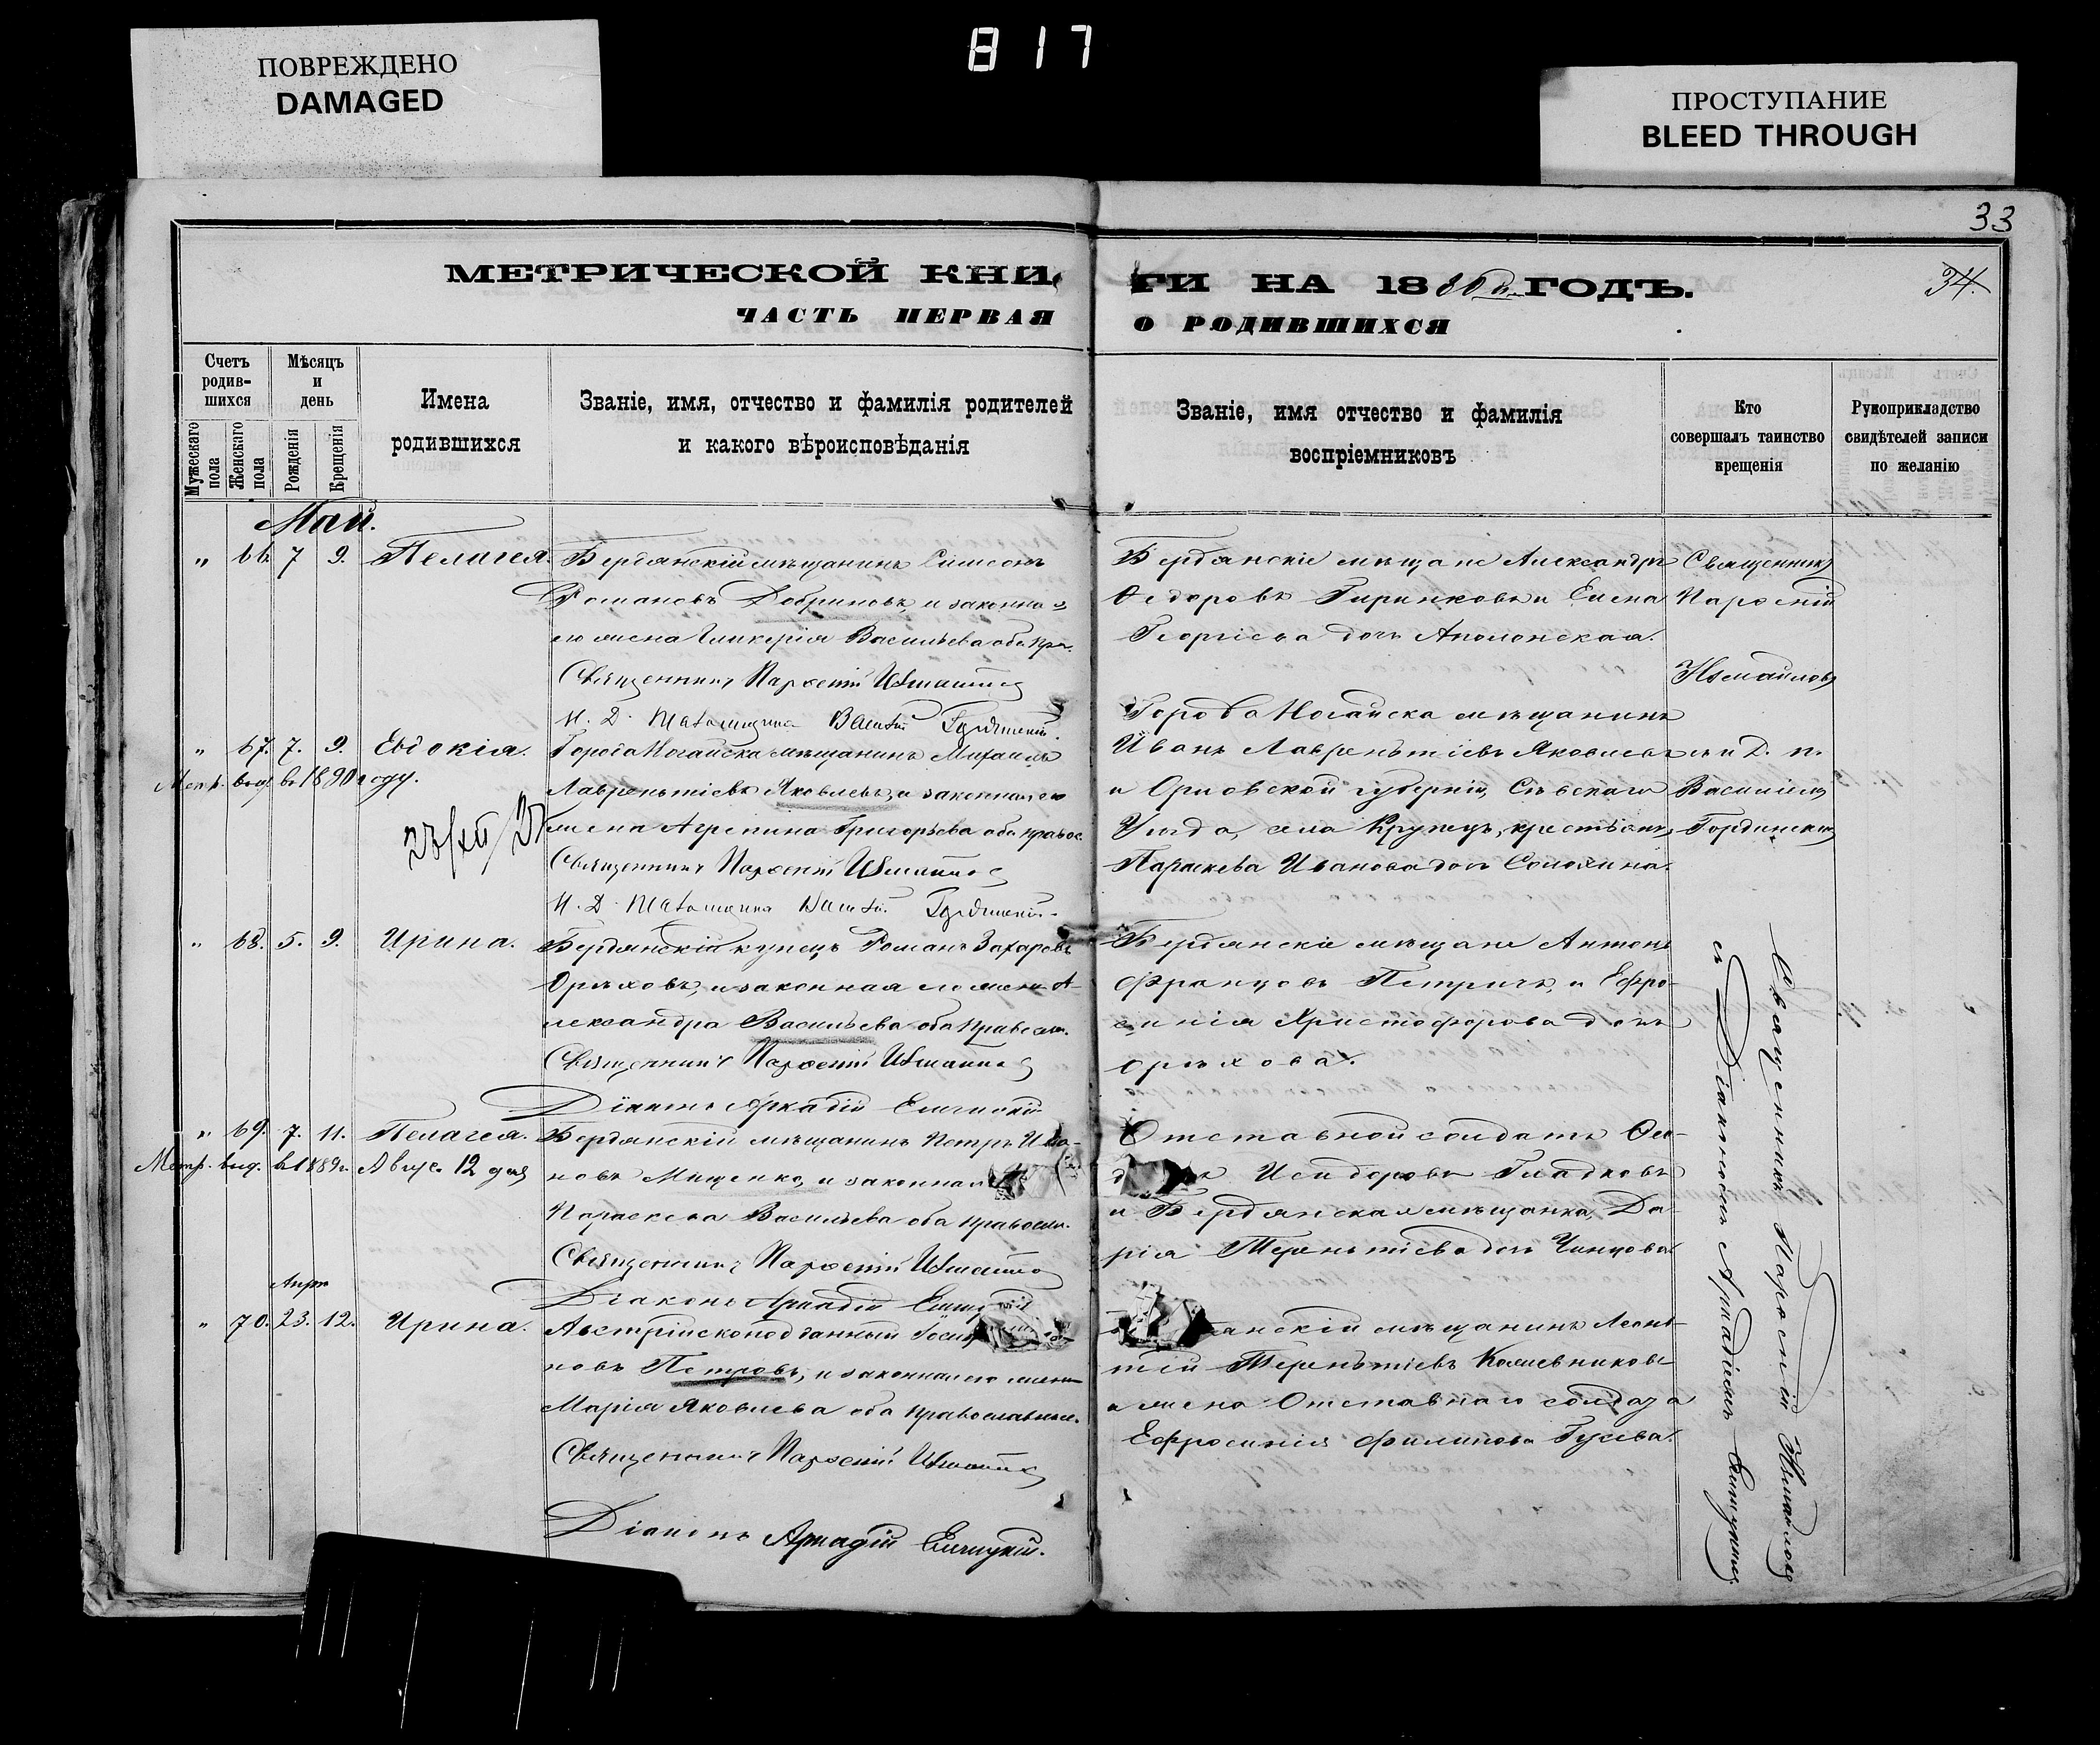 ПОВРЕЖДЕНО
DAMAGED
817
ПРОСТУПАНИЕ
BLEED THROUGH
33
34.
МЕТРИЧЕСКОЙ КНИ
ГИ НА 1880й ГОДЪ.
ЧАСТЬ ПЕРВАЯ
О РОДИВШИХСЯ
Счетъ родив-шихся
Мѣсяцъ и день
Мужескаго пола
Женскаго пола
Рожденія
Крещенія
Имена
родившихся
Званіе, имя, отчество и фамилія родителей
и какого вѣроисповѣданія
Званіе, имя отчество и фамилія
воспріемниковъ
Кто
совершалъ таинство
крещенія
Рукоприкладство
свидѣтелей записи
по желанію
Май.
" 66. 7 9. Пелагея. Бердянскій мѣщанинъ Симеонъ
Романовъ Добриновъ, и законна-
ею жена Гликерія Васильева оба пра.
Священникъ Парѳеній Измаиловъ
И. Д. Псаломщика Василій Гординскій.
Бердянскіе мѣщане Александръ
Ѳедоровъ и Елена
Георгіева дочь Аполонская.
Священникъ
Парѳеній
Измаиловъ
" 67. 7. 9. Евдокія. Города Ногайска мѣщанинъ Михаилъ
Метр. выд. въ 1890 году.
Лаврентіевъ Яковлевъ, и законная его
жена Агрепина Григорьева оба правос.
Священникъ Парѳеній Измаиловъ
И. Д. Псаломщика Василій Гординскій.
Города Ногайска мѣщанинъ
Иванъ Лаврентіевъ Яковлевъ
и Орловской губерніи, Сѣвскаго
Уѣзда, села Крупецъ, крестьянк
Параскева Иванова дочь Соломина.
съ и. д. п.
Василіемъ
Гординскимъ
" 68. 5. 9. Ирина. Бердянскій купецъ Романъ Захаровъ
Орѣховъ, и законная его жена А-
лександра Васильева оба правосл.
Священникъ Парѳеній Измаиловъ
Діаконъ Аркадій Елчицкій
Бердянскіе мѣщане Антонъ
Францовъ Петричъ, и Ефро-
синія Христофорова дочь
Орѣхова.
" 69. 7. 11. Пелагея. Бердянскій мѣщанинъ Петръ Ива-
Метр. выд. въ 1889 г. Авгус. 12 дня
новъ Мищенко, и законная
Параскева Васильева оба правосл.
Священникъ Парѳеній Измаиловъ
Діаконъ Аркадій
Отставной солдатъ
Исидоровъ Гладковъ
и Бердянская мѣщанка, Да-
рія Терентіева дочь
Апрѣ
" 70. 23. 12. Ирина. Австрійскоподданный
новъ Петровъ, и законная его жена
Марія Яковлева оба православные.
Священникъ Парѳеній Измаиловъ
Діаконъ Аркадій Елчицкій.
янскій мѣщанинъ Леонъ-
тій Терентіевъ Кожевниковъ
и жена Отставнаго солдата
Ефросинія Филипова Гусева.
Священникъ Парѳеній Измаиловъ
съ Діакономъ Аркадіемъ Елчицкимъ.